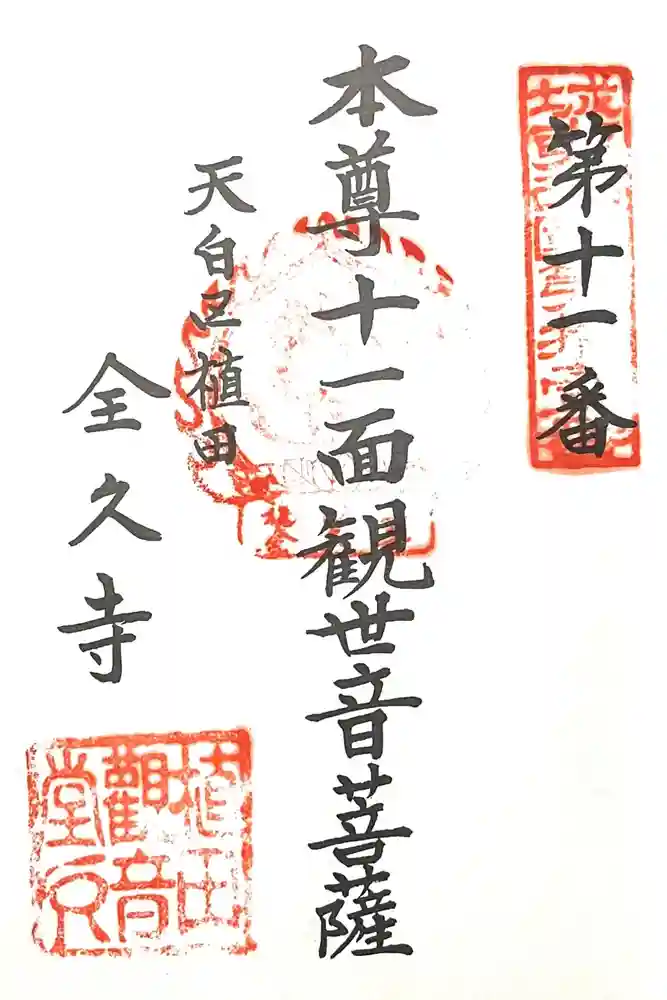 第十一番
本尊十一面観世音菩薩
天白区植田
全久寺
植田
観音
堂印